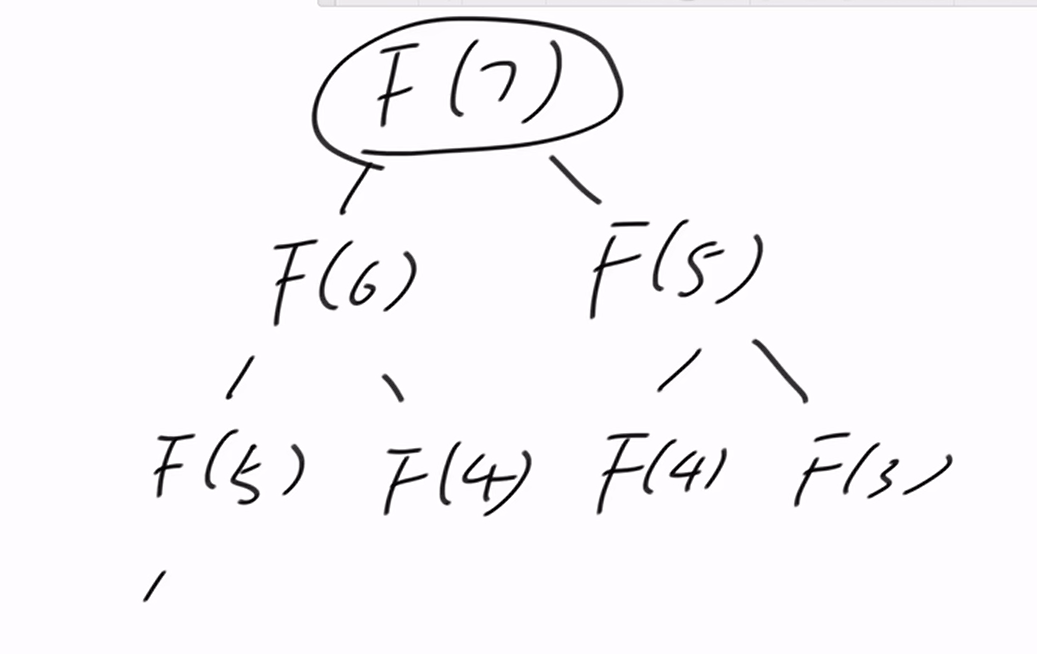 F(7)
F(6) F(5)
F(5) F(4) F(4) F(3)